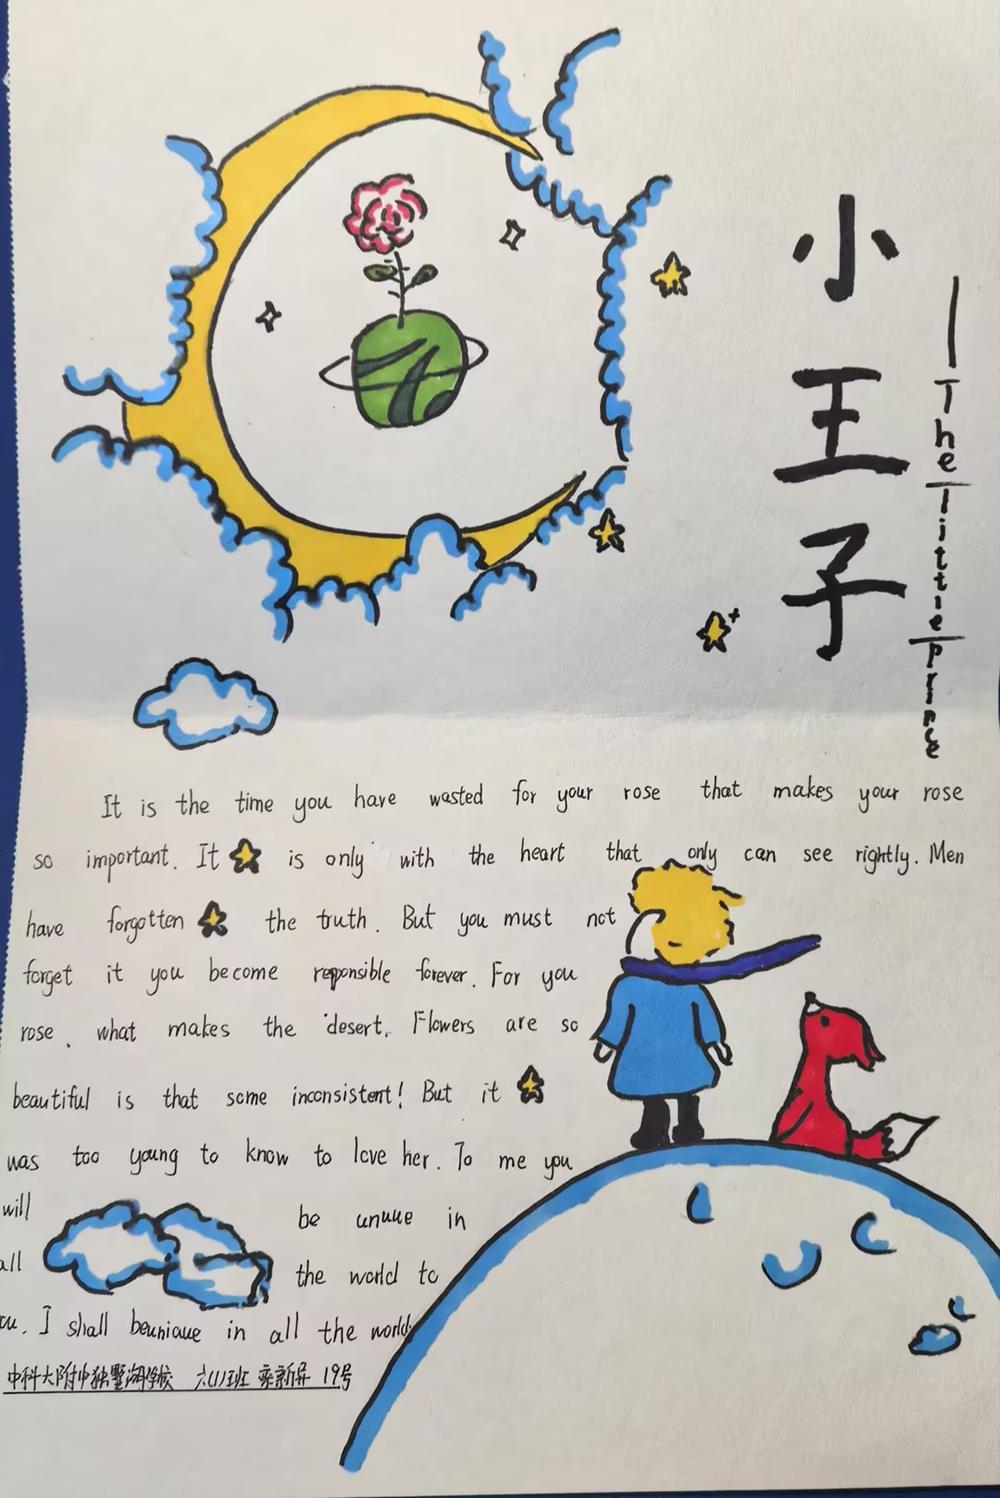 小王子
—The little prince
It is the time you have wasted for your rose that makes your rose
so important. It is only with the heart that only can see rightly. Men
have forgotten the truth. But you must not
forget it you become responsible forever. For you
rose. what makes the desert. Flowers are so
beautiful is that some inconsistent! But it
was too young to know to love her. To me you
will be unuue in
all the world to
I shall beuniaue in all the world.
中科大附中独墅湖学校 六(1)班 栾新异 19号